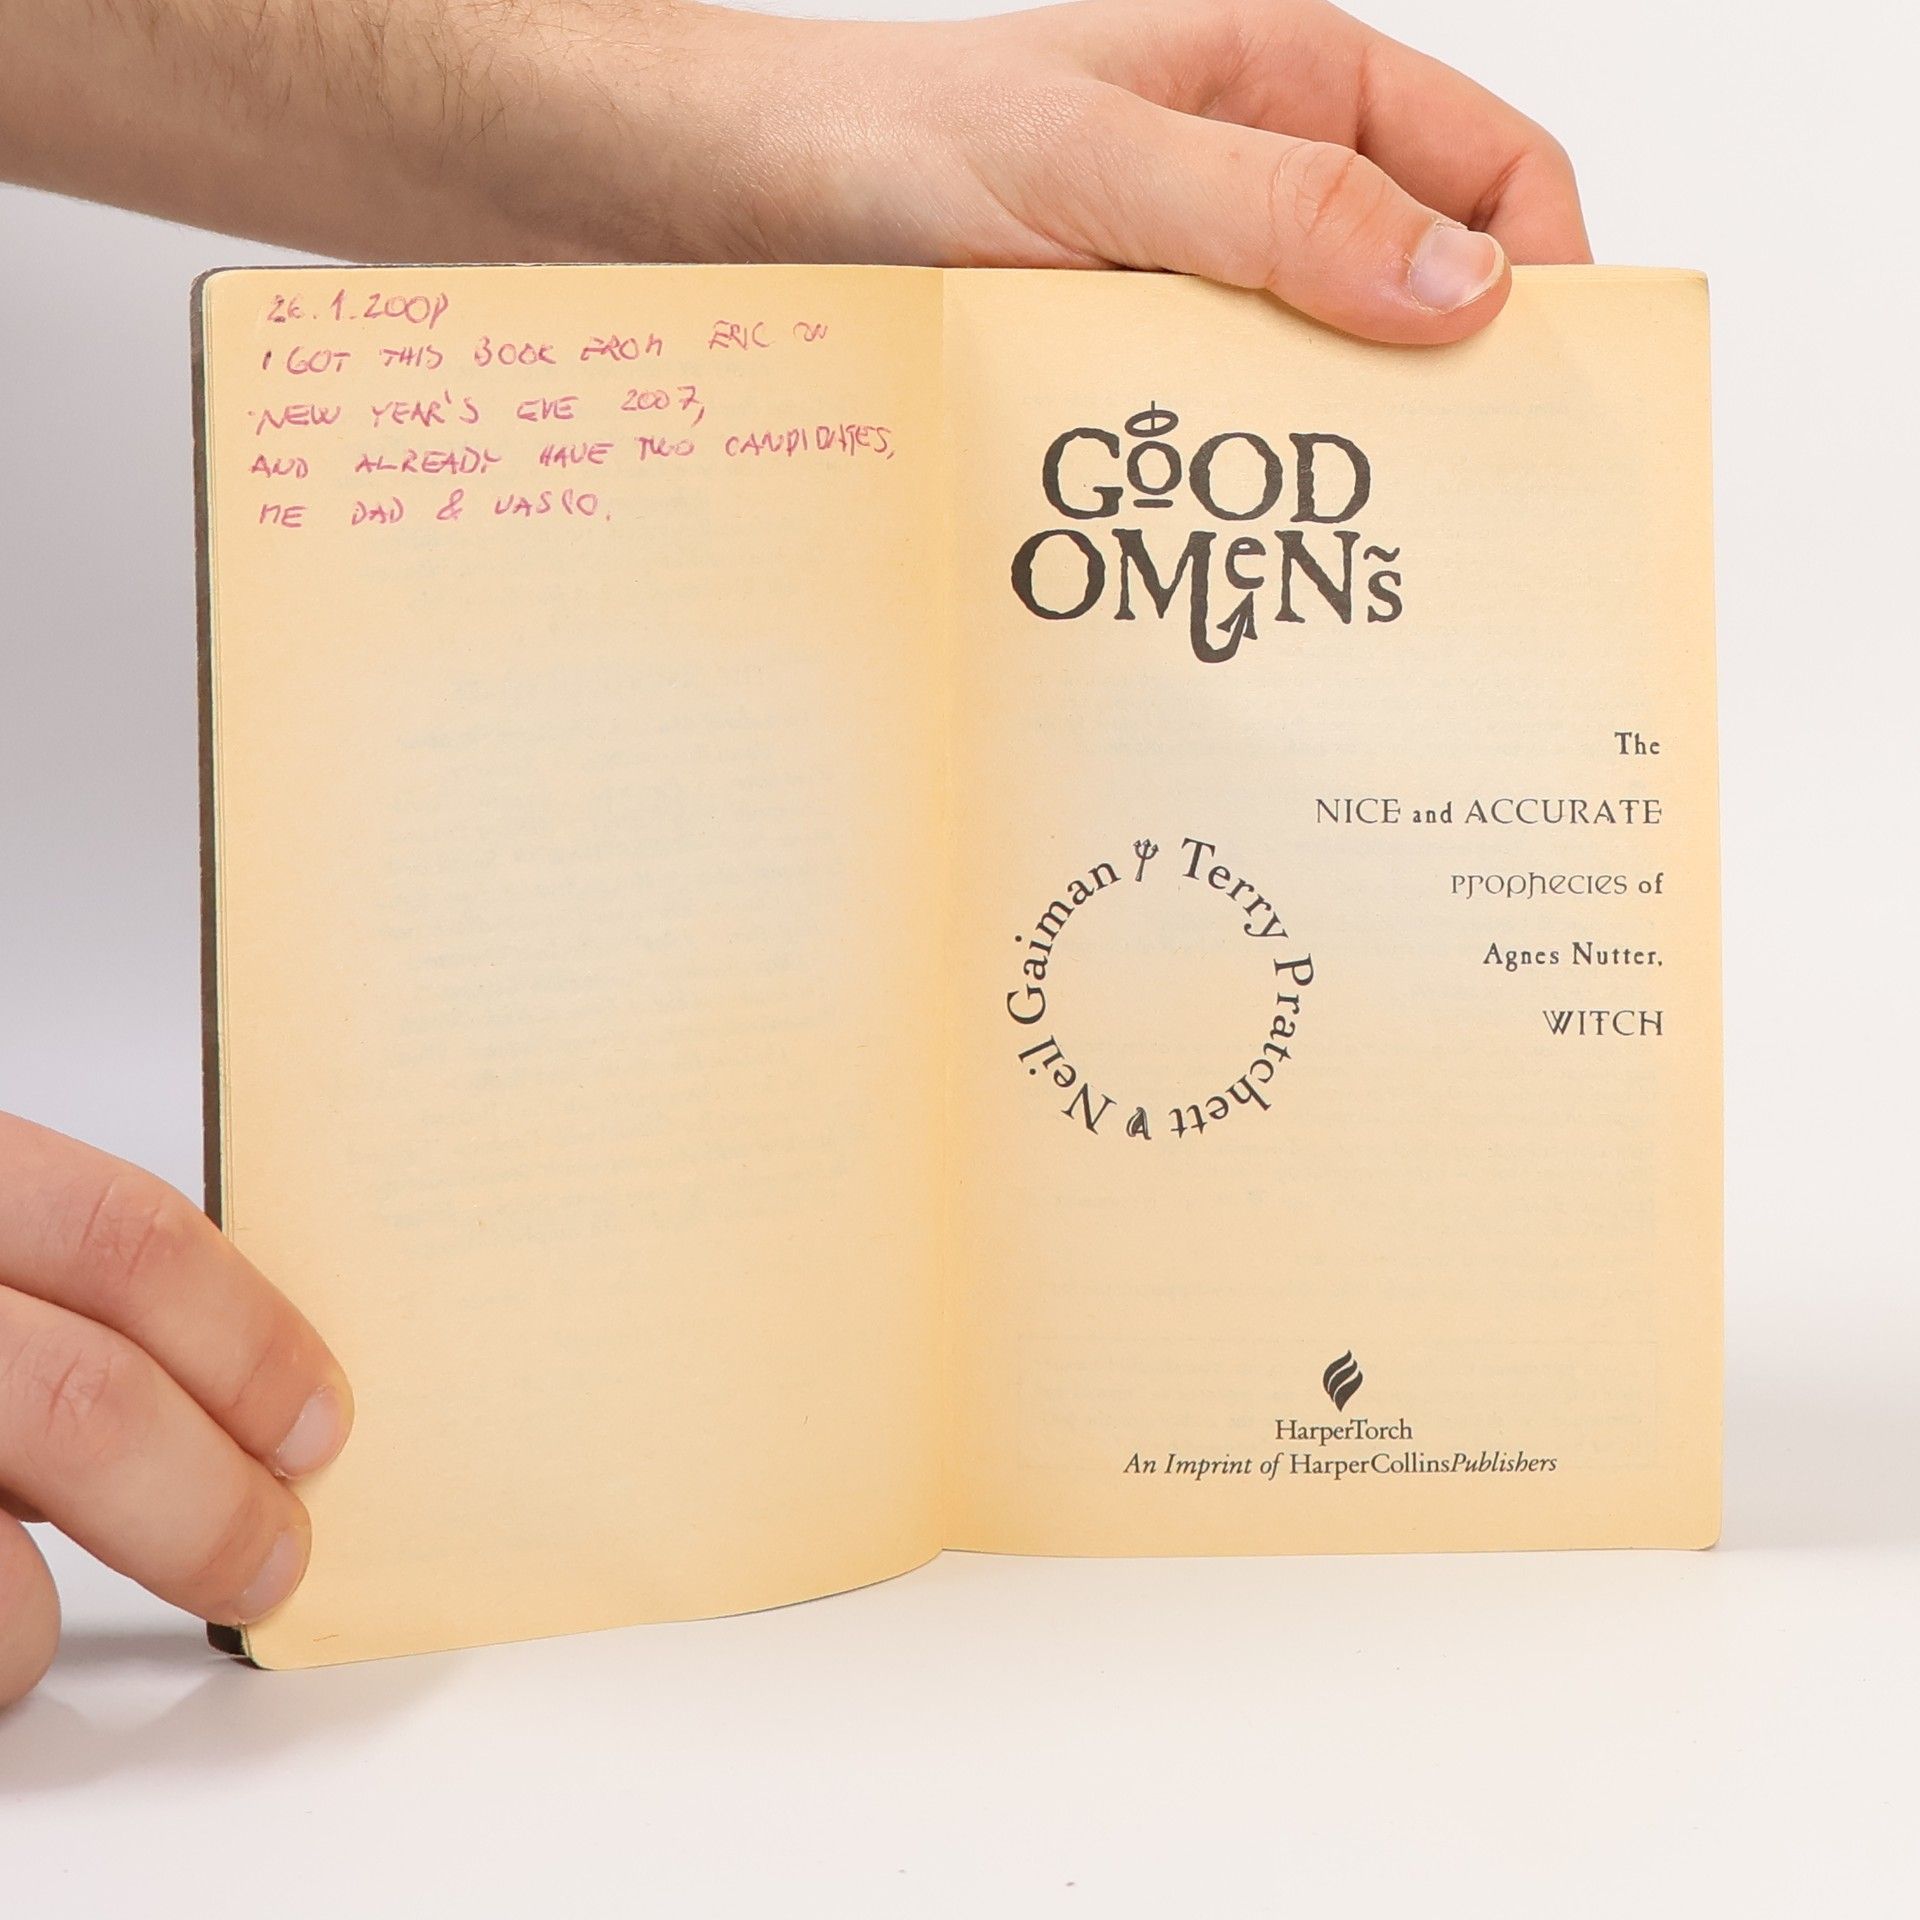 I GOT THIS BOOK FROM ERIC ON
NEW YEAR'S EVE 2007,
AND ALREADY HAVE TWO CANDIDATES,
ME DAD & VASCO.
GOOD
OMENS
The
NICE and ACCURATE
PROPHECIES of
Agnes Nutter,
WITCH
Neil Gaiman
Terry Pratchett
HarperTorch
An Imprint of HarperCollinsPublishers